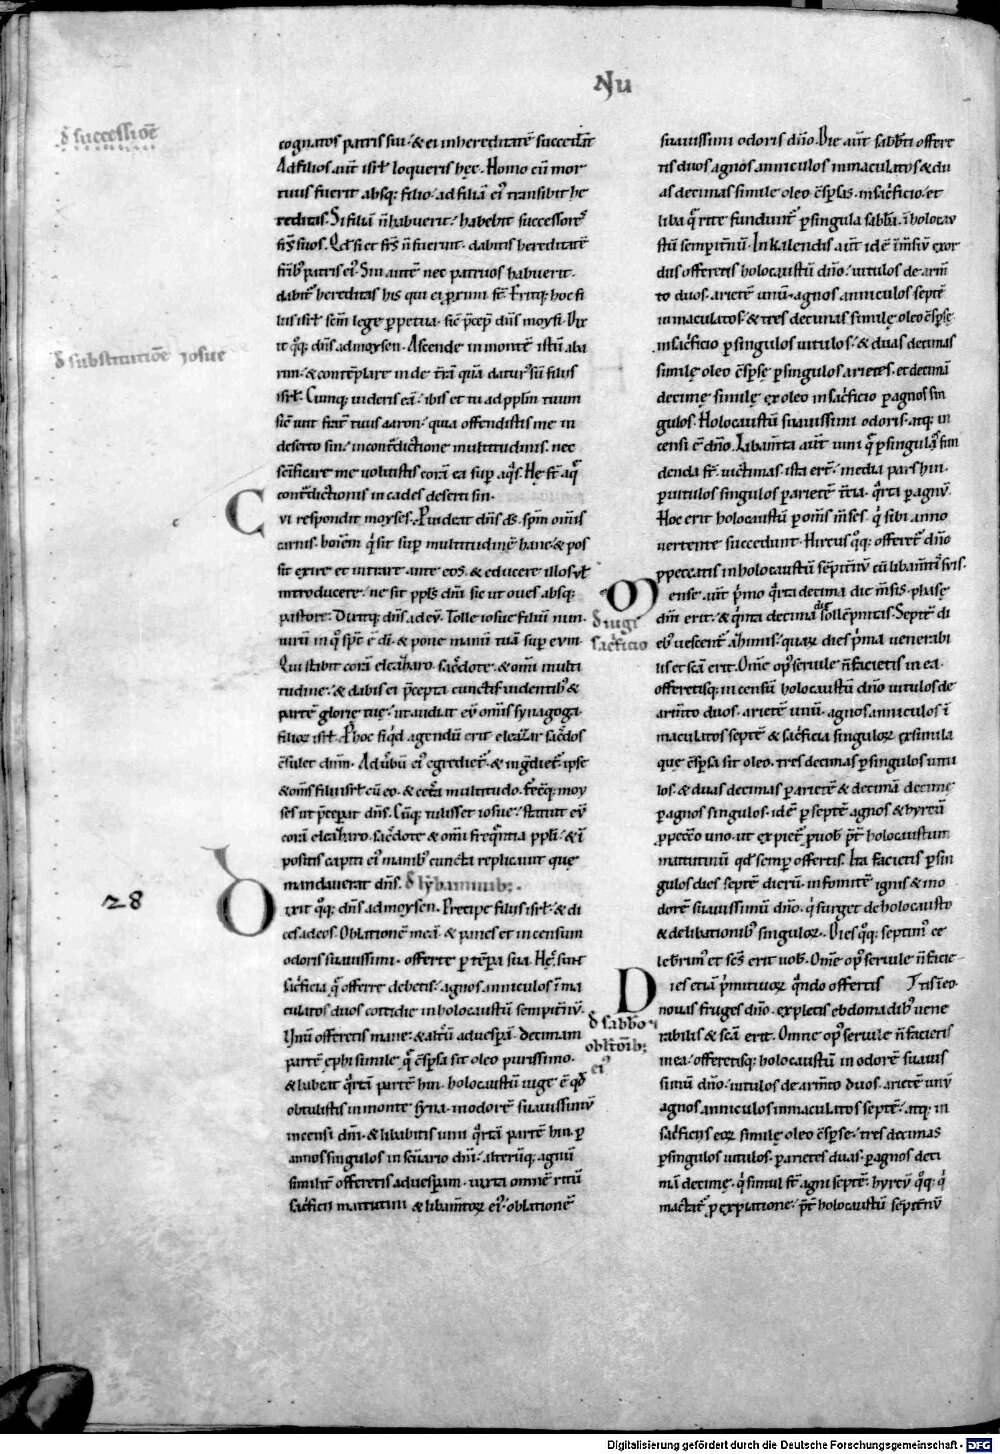 NU
đ successiōe
cognatos patris sui. & ei in hereditatē succedāt
Ad filios aūt isrł loqueris hęc. Homo cū mor
tuus fuerit absq; filio. ad filiā ei' transibit he
reditas. Si filiā ñ habuerit. habebit successores
fr̄s suos. Qđ si et fr̄s ñ fuerint. dabitis hereditatē
fr̄ib; patris ei'. Sin autē nec patruos habuerit.
dabit' hereditas his qui ei p̱ximi st̄. Eritq; hoc fi
liis isrł scm̄ lege p̱petua. sic̄ p̄cep̄ dn̄s moysi. Dix
it q°q; dn̄s ad moysen. Ascende in montē istū aba
đ substitutiōe iosue
rim. & contēplare inde t̄rā quā datur' sū filiis
isrł. Cumq; uideris eā. ibis et tu ad pplm̄ tuum
sic̄ iuit frāt tuus aaron. quia offendistis me in
deserto sin. in cont̄dictione multitudinis. nec
sc̄ificare me uoluistis corā ea sup̱ aq̄s. Hę st̄ aq̄
cont̄dictionis in cades deserti sin.
CVI respondit moyses. Puideat dn̄s d̄s. spm̄ omīs
carnis. hoīem q̇ sit sup̱ multitudinē hanc. & pos
sit exire et intrare ante eos. & educere illos uł
introducere. ne sit ppl̄s dn̄i sic ut oues absq;
pastore. Dixitq; dn̄s ad eū. Tolle iosue filiū nun.
uirū in q° sp̄c ē dī. & pone manū tuā sup̱ eum.
Qui stabit corā eleazaro sac̄dote. & omī multi
tudine. & dabis ei p̄cepta cunctis uidentib; &
partē glorię tuę. ut audiat eū omīs synagoga
filioꝝ isrł. P hoc siq̇d agendū erit eleazar sac̄dos
c̄sulet dnm̄. Ad ūbū ei' egrediet'. & ing̊diet' ipse
& om̄s filii isrł cū eo. & cet̄a multitudo. Fecitq; moy
ses ut p̄cep̱at dn̄s. Cūq; tulisset iosue. statuit eū
corā eleazaro sac̄dote & omī freq̄ntia ppłi. & ī
positis capiti ei' manib; cuncta replicauit quę
mandauerat dn̄s. đ lybaminib;.
28
DIxit q°q; dn̄s ad moysen. Precipe filiis isrł. & di
ces ad eos. Oblationē meā. & panes et incensum
odoris suauissimi. offerte p̱ tēpa sua. Hę sunt
sac̄ficia q̄ offerre debetis. agnos anniculos īma
culatos duos cottidie in holocaustū sempit̄nū.
Unū offeretis mane. & alt̄ū ad uesp̱ā. decimam
partē ephi simile. q̄ c̄sp̱sa sit oleo purissimo.
& habeat q̄rtā partē hin. holocaustū iuge ē qđ
obtulistis in monte syna. in odorē suauissimū
incensi dn̄i. & libabitis uini q̄rtā partē hin. p̱
annos singulos in sc̄uario dn̄i. alterūq; agnū
similit̄ offeretis ad uesp̱am. iuxta omnē ritū
sac̄ficii matutini & libam̄toꝝ ei'. oblationē
suauissimi odoris dn̄o. Die aūt sabb̄ti offere
tis duos agnos anniculos inmaculatos & du
as decimas simile oleo c̄sp̱sas. in sac̄ficio. et
liba q̄ rite fundunt' p̱ singula sabb̄a. ī holocau
stū sempit̄nū. In kalendis aūt idē īm̄siū exor
diis offeretis holocaustū dn̄o. uitulos de arm̄
to duos. arietē unū. agnos anniculos septē
inmaculatos. & tres decimas similę oleo c̄sp̱sę
in sac̄ficio p̱ singulos uitulos. & duas decimas
similę oleo c̄sp̱sę p̱ singulos arietes. et decimā
decimę similę ex oleo in sac̄ficio p̱ agnos sin
gulos. Holocaustū suauissimi odoris. atq; in
censi ē dn̄o. Libam̄ta aūt uini q̄ p̱ singulas fun
denda st̄ uictimas. ista er̄t. media pars hin.
p̱ uitulos singulos. p̱ arietē t̄cia. q̄rta p̱ agnū.
Hoc erit holocaustū p̱ om̄s m̄ses. q̇ sibi anno
uertente succedunt. Hircus q°q; offeret' dn̄o
p peccatis in holocaustū sēpit̄nū cū libam̄tis suis.
MEnse aūt ṗmo q̄rta decima die m̄sis. phasę
dn̄i erit. & q̇nta decima die sollēpnitas. Septē di
đ iugi
sac̄ficio
eb; uescent' azimis. quaꝝ dies ṗma uenerabi
lis et sc̄a erit. Om̄e op' seruile ñ facietis in ea.
offeretisq; incensū holocaustū dn̄o uitulos de
arm̄to duos. arietē unū. agnos anniculos ī
maculatos septē & sac̄ficia singuloꝝ ex simila
que c̄sp̱sa sit oleo. tres decimas p̱ singulos uitu
los. & duas decimas p̱ arietē & decimā decimę
p̱ agnos singulos. idē p̱ septē agnos & hyrcū
p peccato uno. ut expiet' p uob̄. p̄t holocaustum
matutinū qđ semp̱ offertis. Ita facietis p̱ sin
gulos dies septē dierū. in fomitē ignis & in o
dorē suauissimū dn̄o. q̇ surget de holocausto
& de libationib; singuloꝝ. Dies q°q; septim' ce
leberrim' et sc̄s erit uob̄. Om̄e op' seruile ñ facie
tis ī eo.
DIes etiā ṗmitiuoꝝ q̄ndo offertis
nouas fruges dn̄o. expletis ebdomadib; uene
đ sabbōꝝ
rabilis & sc̄a erit. Omne op' seruile ñ facietis
obłtōīb;
in ea. offeretisq; holocaustū in odorē suauis
ei'
simū dn̄o. uitulos de arm̄to duos. arietē unū
agnos anniculos inmaculatos septē. atq; in
sac̄ficiis eoꝝ similę oleo c̄sp̱se. tres decimas
p̱ singulos uitulos. p̱ arietes duas. p̱ agnos deci
mā decimę. q̇ simul st̄ agni septē. hyrcū q°q; q̇
mactat' p expiatione. p̄t holocaustū sēpit̄nū
Digitalisierung gefördert durch die Deutsche Forschungsgemeinschaft - DFG